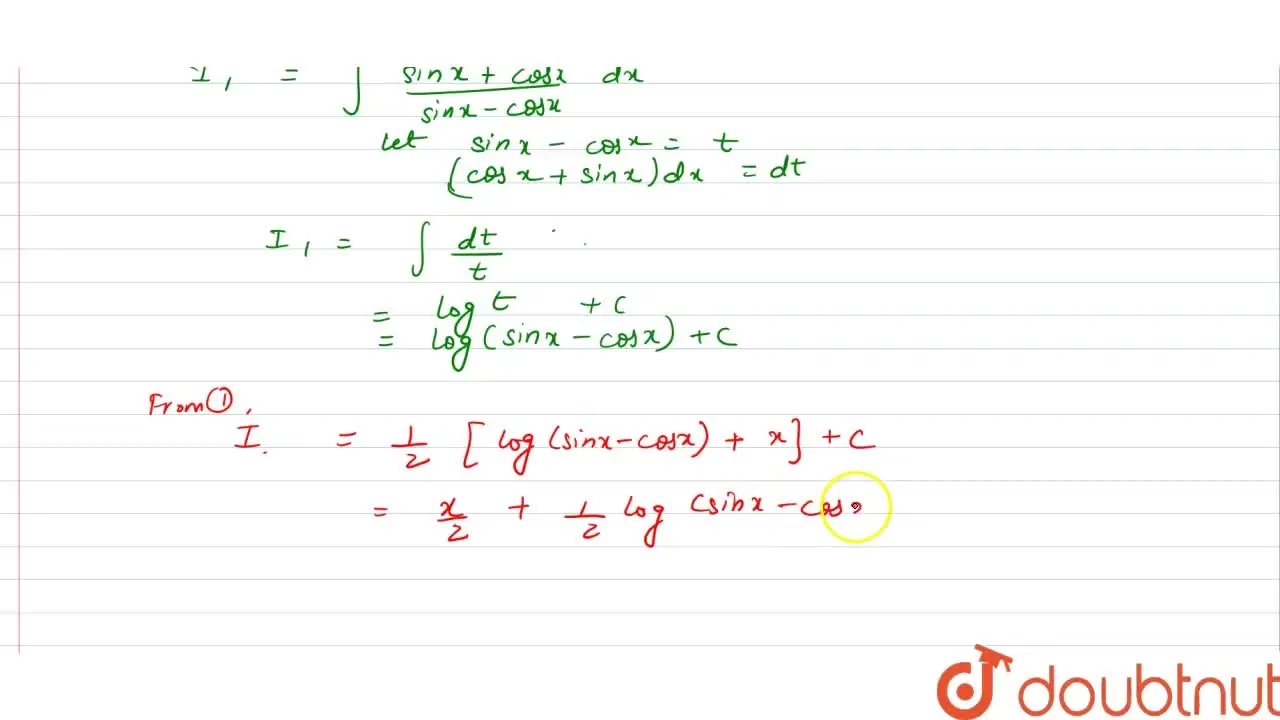 I₁ = ∫ (sinx + cosx)/(sinx - cosx) dx
let sinx - cosx = t
(cosx + sinx)dx = dt
I₁ = ∫ dt/t
= log t + C
= log(sinx - cosx) + C
From ①,
I = 1/2 [log(sinx-cosx) + x] + C
= x/2 + 1/2 log (sinx - cos
doubtnut